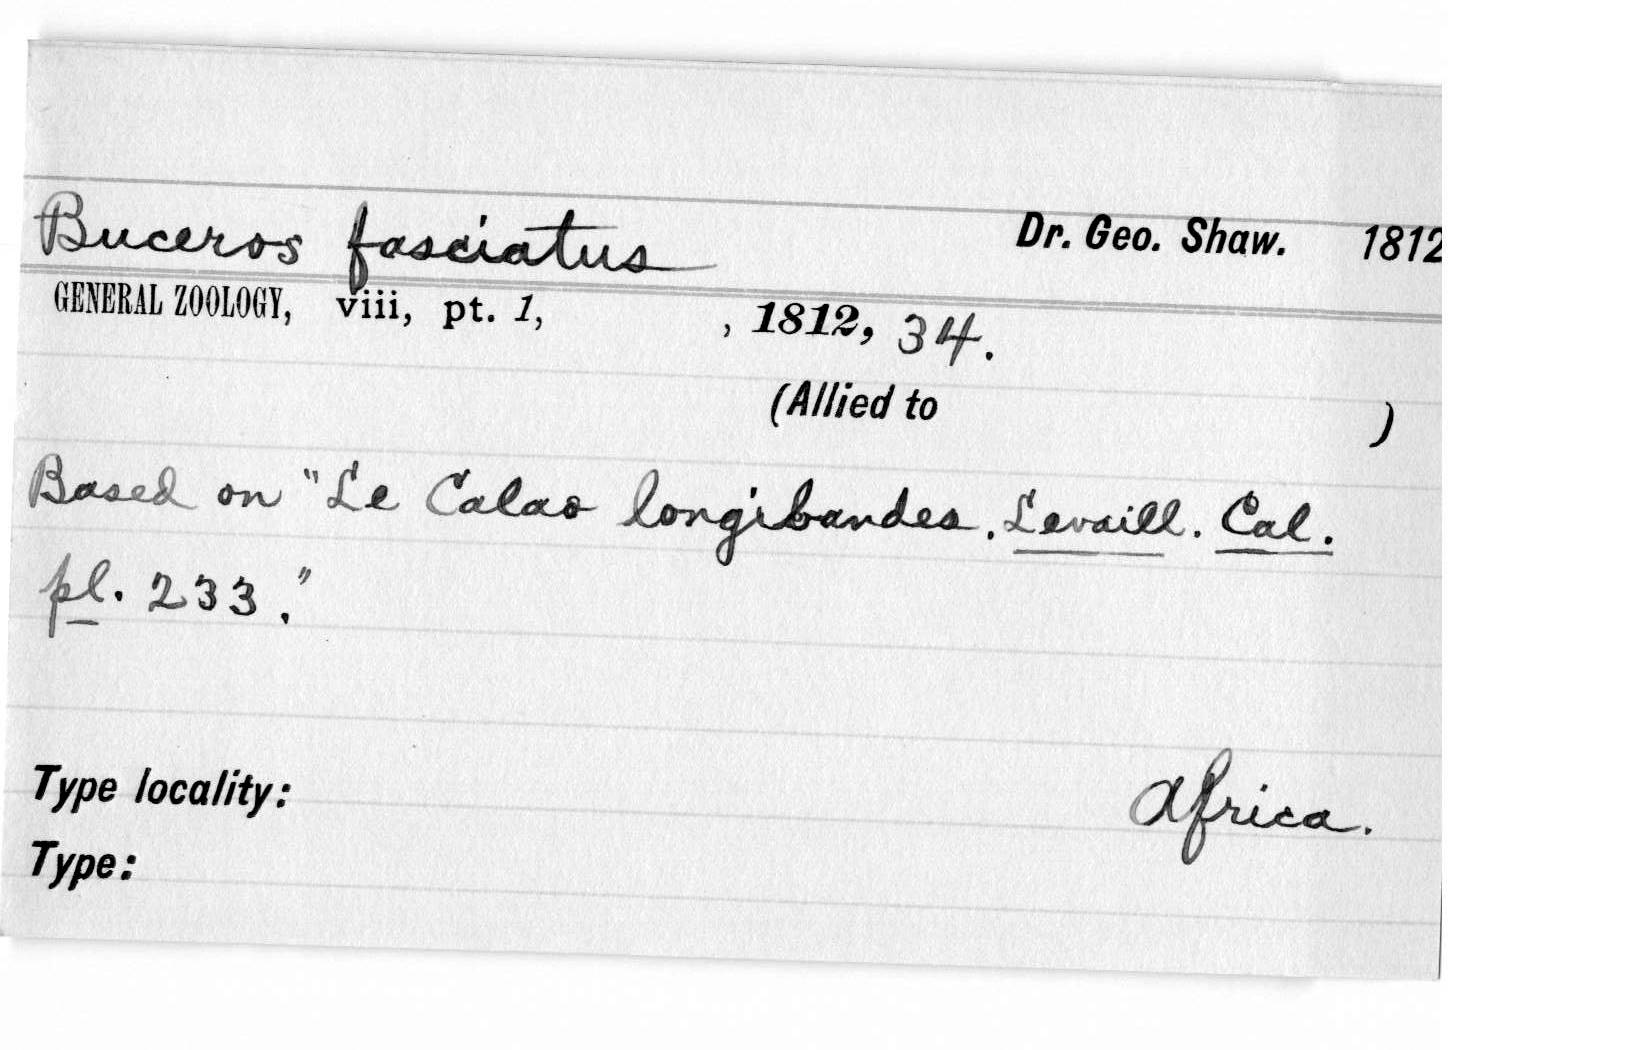 Buceros fasciatus Dr. Geo. Shaw. 1812
GENERAL ZOOLOGY, viii, pt. 1, , 1812, 34.
(Allied to )
Based on "Le Calao longibandes. Levaill. Cal.
pl. 233."
Type locality: Africa.
Type: